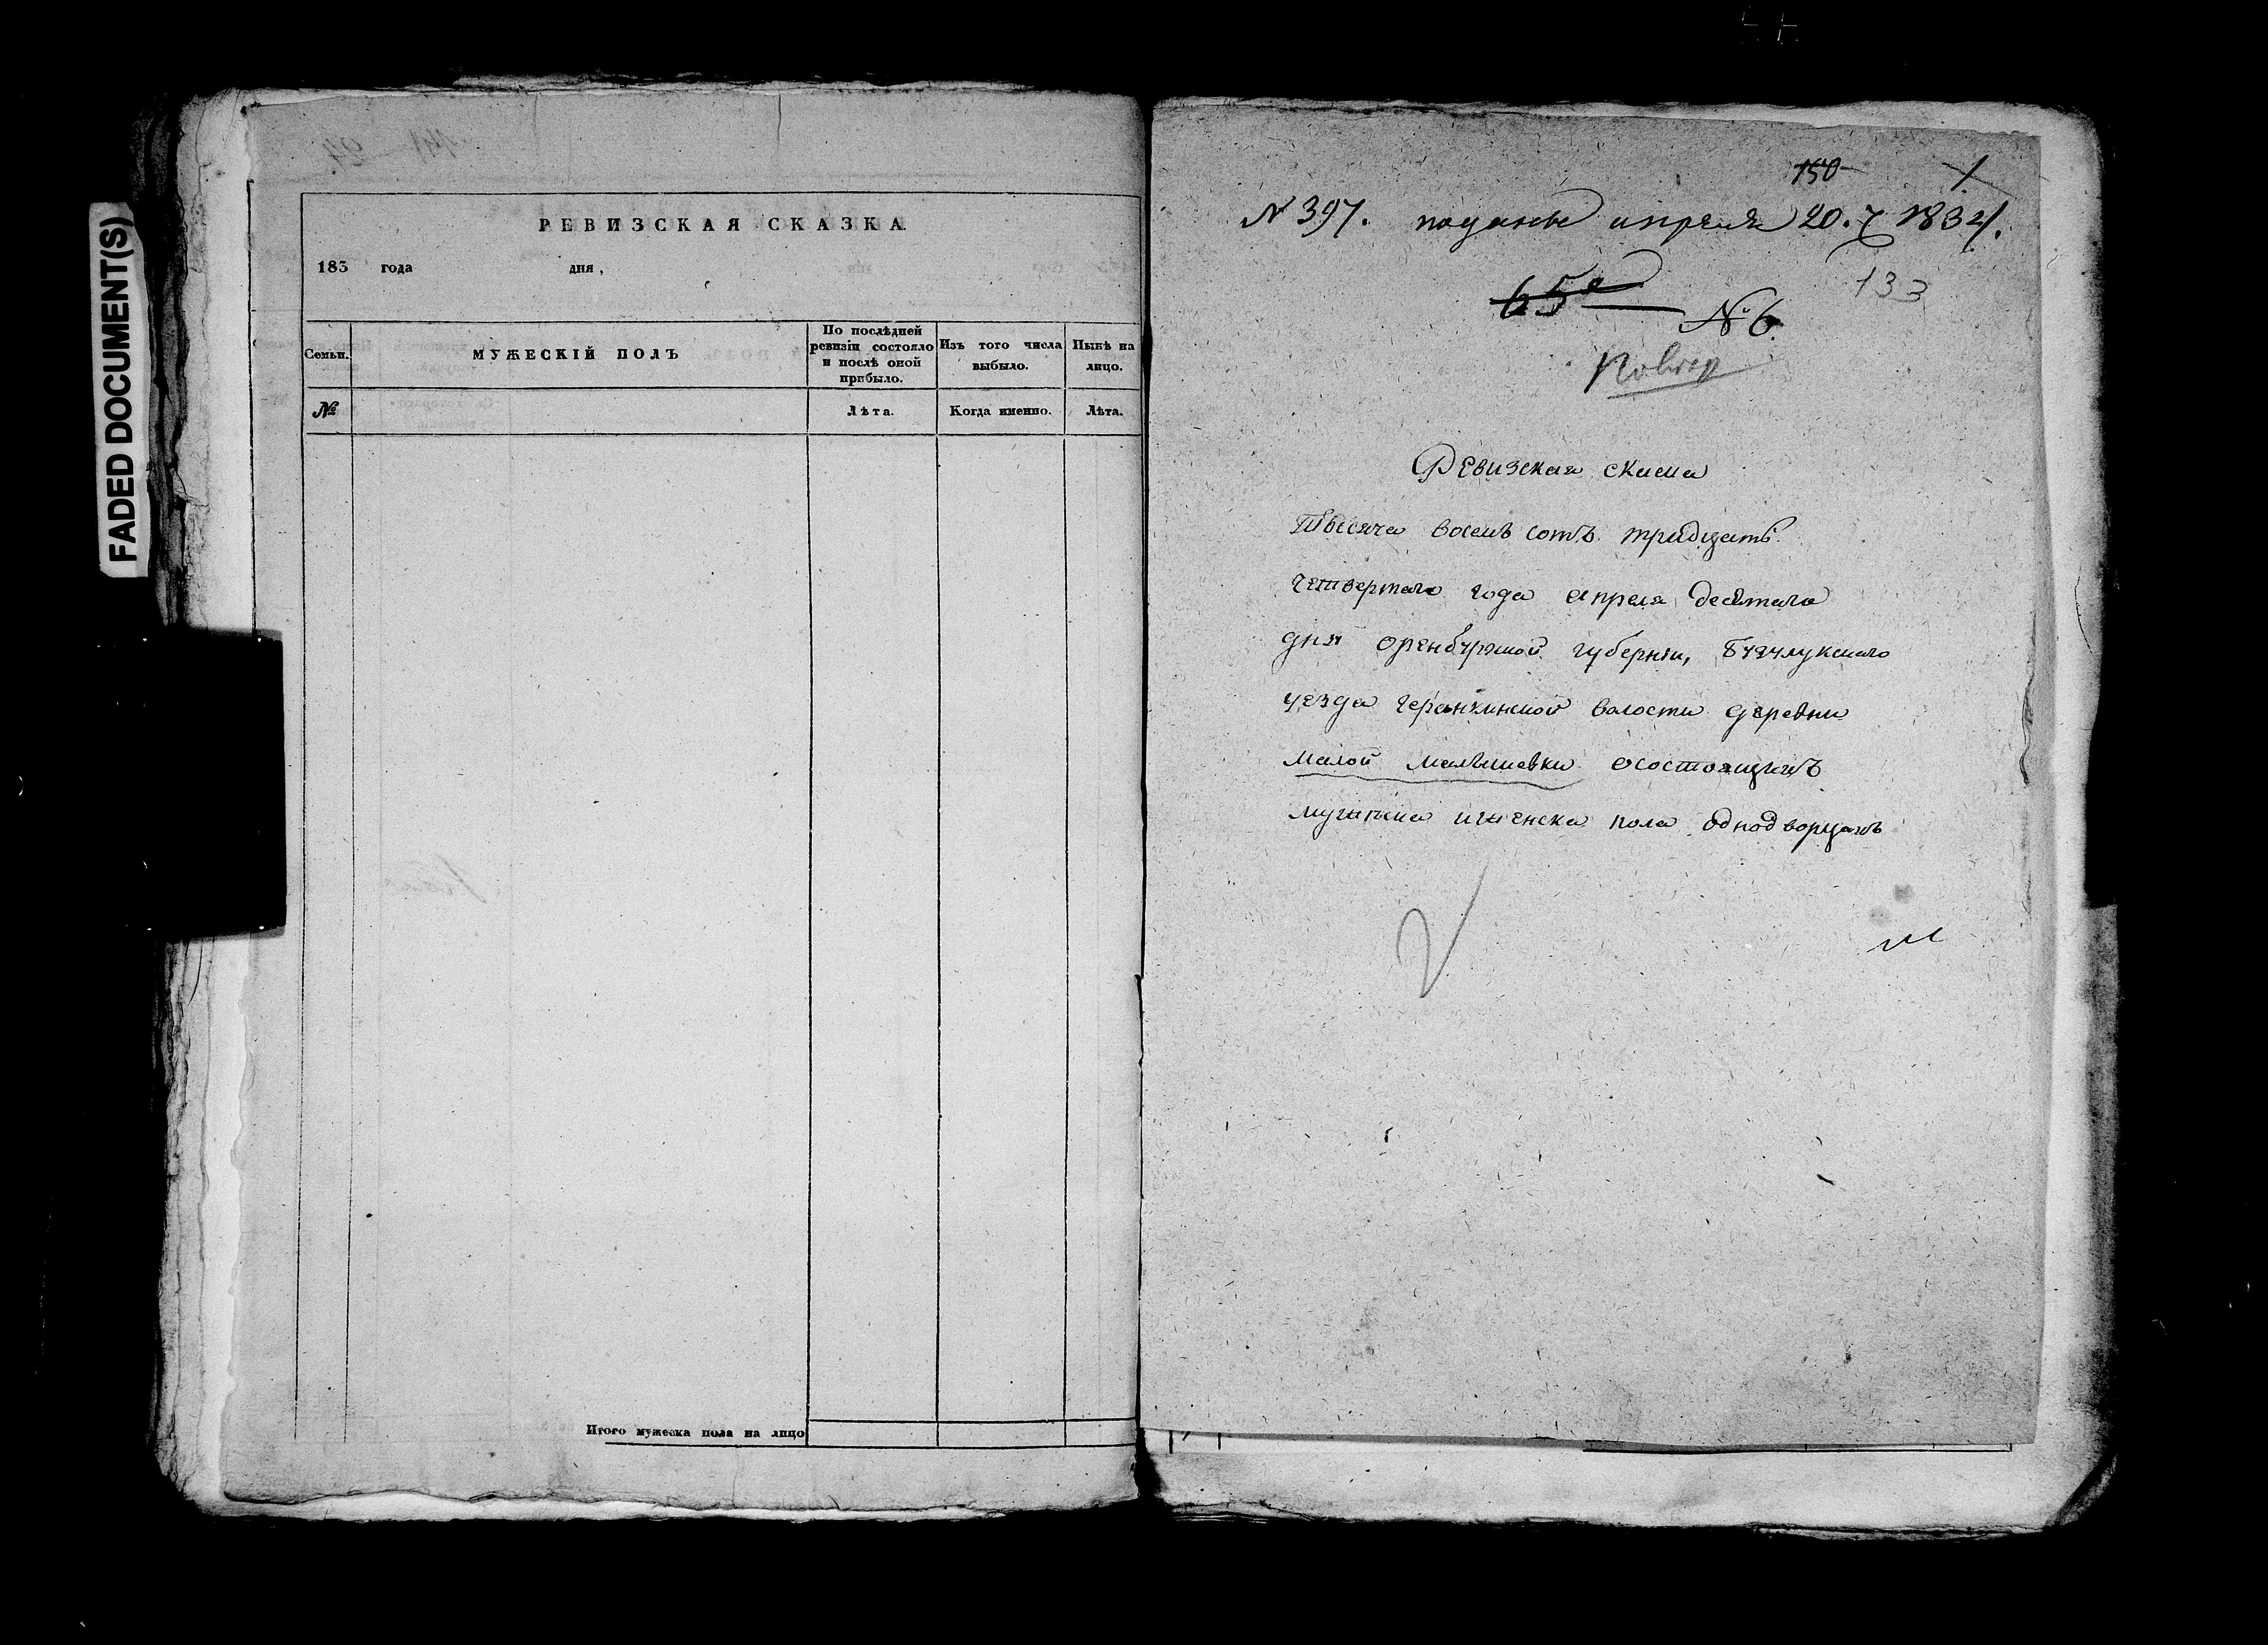 FADED DOCUMENT(S)
РЕВИЗСКАЯ СКАЗКА
183 года дня,
Семьи.
МУЖЕСКІЙ ПОЛЪ
По послѣдней
ревизіи состояло
и послѣ оной
прибыло.
Изъ того числа
выбыло.
Нынѣ на
лицо.
№
Лѣта.
Когда именно.
Лѣта.
Итого мужеска пола на лицо
150
1
N 397. апреля 20. 1834.
133
65
№ 6.
Ревизская скаска
Тысяча восемъ сотъ тридцать
четвертаго года апреля десятаго
дня оренбургской губерніи, бузулукскаго
уезда волости деревни
малой малышевки осостоящихъ
мужеска иженска пола однодворцахъ